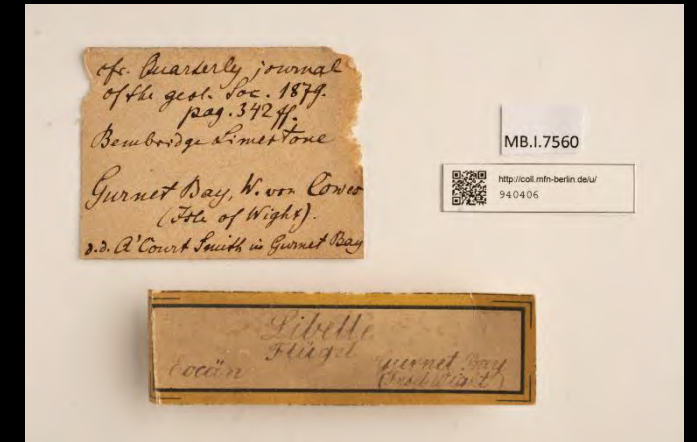 cfr. Quarterly journal
of the geol. Soc. 1879.
pag. 342 ff.
Bembridge Limestone
Gurnet Bay, W. von Cowes
(Isle of Wight).
d.d. A'Court Smith in Gurnet Bay
MB.I.7560
http://coll.mfn-berlin.de/u/
940406
Libelle
Flügel
Eocän
Gurnet Bay
(Insel Wight)